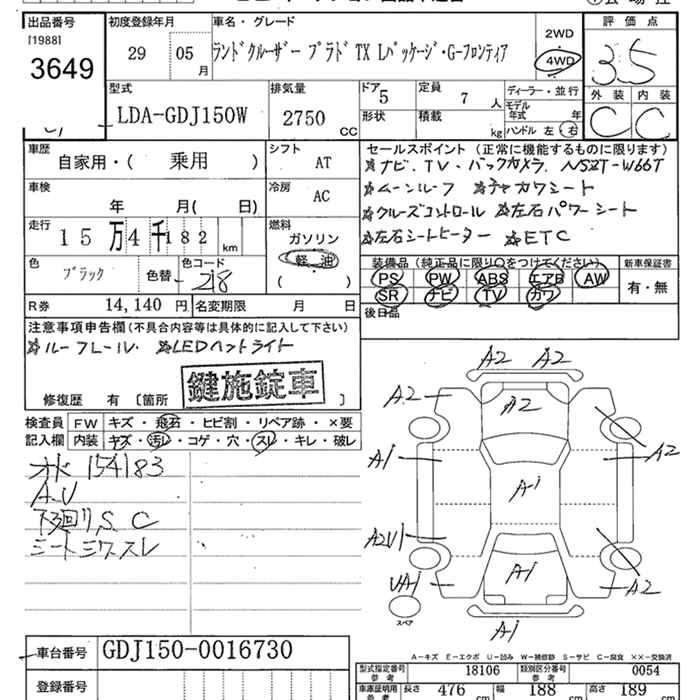 出品番号
[1988]
3649
初度登録年月
29 05 月
車名・グレード
ランドクルーザー プラド TX Lパッケージ・G-フロンティア
2WD
4WD
評価点
3.5
外装 内装
C C
型式
LDA-GDJ150W
排気量
2750 CC
ドア 5
定員 7 人
形状
積載 kg
ディーラー・並行
モデル年式 年
ハンドル 左・右
車歴
自家用・( 乗用 )
シフト
AT
車検
年 月( 日)
冷房
AC
走行
15万4千182 km
燃料
ガソリン
軽油
( )
色
ブラック
色替
色コード
218
R券 14,140 円
名変期限 月 日
セールスポイント(正常に機能するものに限ります)
☆ナビ、TV・バックカメラ、NSZT-W66T
☆ムーンルーフ ☆チャカワシート
☆クルーズコントロール ☆左右パワーシート
☆左右シートヒーター ☆ETC
装備品(純正品に限り○をつけてください)
PS PW ABS エアB AW
SR ナビ TV カワ
新車保証書
有・無
後日品
注意事項申告欄(不具合内容等は具体的に記入して下さい)
☆ルーフレール、 ☆LEDヘッドライト
鍵施錠車
修復歴 有 [箇所 ]
検査員記入欄
FW キズ・飛石・ヒビ割・リペア跡・×要
内装 キズ・汚レ・コゲ・穴・スレ・キレ・破レ
オド 154183
A.U
下回リ S.C
シートシワ、スレ
A2 A2
A2 A2
A1 A2
A1
A2U1
UA1 A1 A2
A1
スペア
A-キズ E-エクボ U-凹み W-補修跡 S-サビ C-腐食 XX-交換済
車台番号 GDJ150-0016730
登録番号
型式指定番号 参考 18106
類別区分番号 参考 0054
車庫証明用 参考
長さ 476 cm
幅 188 cm
高さ 189 cm